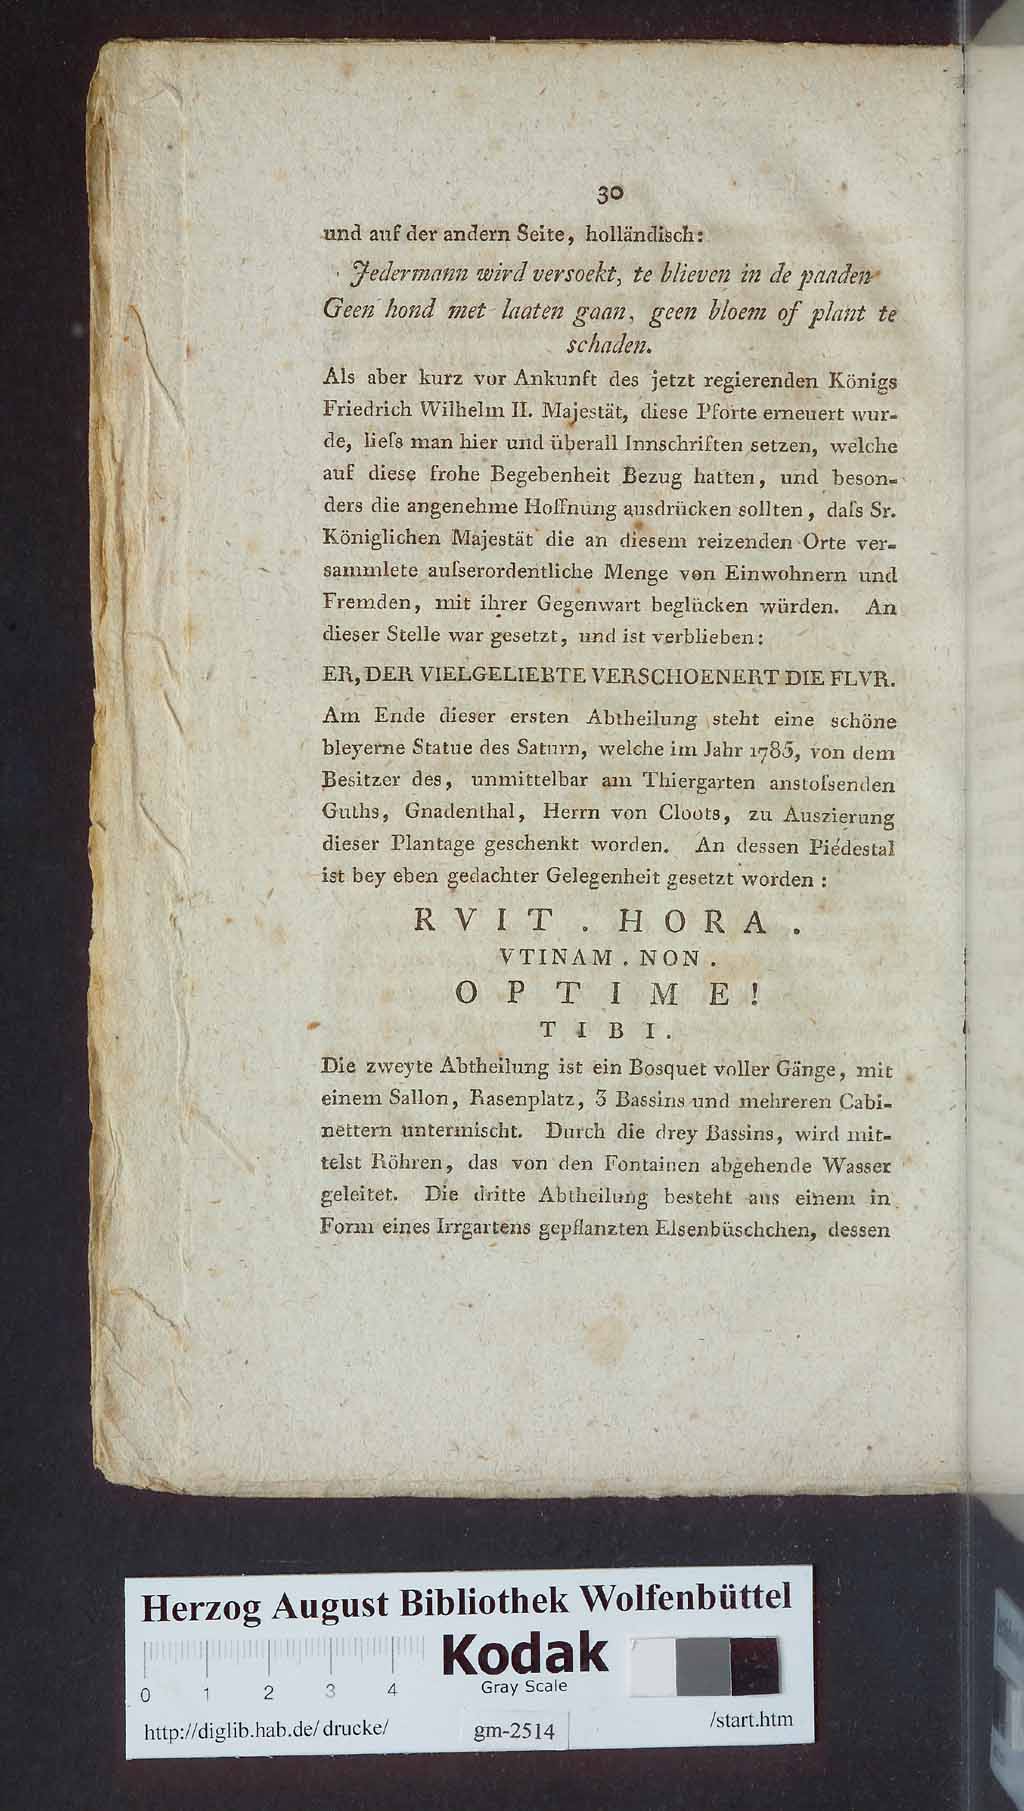 30
und auf der andern Seite, holländisch:
Jedermann wird versoekt, te blieven in de paaden
Geen hond met laaten gaan, geen bloem of plant te
schaden.
Als aber kurz vor Ankunft des jetzt regierenden Königs
Friedrich Wilhelm II. Majestät, diese Pforte erneuert wur-
de, liefs man hier und überall Innschriften setzen, welche
auf diese frohe Begebenheit Bezug hatten, und beson-
ders die angenehme Hoffnung ausdrücken sollten, dafs Sr.
Königlichen Majestät die an diesem reizenden Orte ver-
sammlete aufserordentliche Menge von Einwohnern und
Fremden, mit ihrer Gegenwart beglücken würden. An
dieser Stelle war gesetzt, und ist verblieben:
ER, DER VIELGELIEBTE VERSCHOENERT DIE FLVR.
Am Ende dieser ersten Abtheilung steht eine schöne
bleyerne Statue des Saturn, welche im Jahr 1785, von dem
Besitzer des, unmittelbar am Thiergarten anstofsenden
Guths, Gnadenthal, Herrn von Cloots, zu Auszierung
dieser Plantage geschenkt worden. An dessen Piédestal
ist bey eben gedachter Gelegenheit gesetzt worden :
RVIT . HORA .
VTINAM . NON .
OPTIME!
TIBI.
Die zweyte Abtheilung ist ein Bosquet voller Gänge, mit
einem Sallon, Rasenplatz, 3 Bassins und mehreren Cabi-
nettern untermischt. Durch die drey Bassins, wird mit-
telst Röhren, das von den Fontainen abgehende Wasser
geleitet. Die dritte Abtheilung besteht aus einem in
Form eines Irrgartens gepflanzten Elsenbüschchen, dessen
Herzog August Bibliothek Wolfenbüttel
Kodak
Gray Scale
0 1 2 3 4
http://diglib.hab.de/drucke/ gm-2514 /start.htm